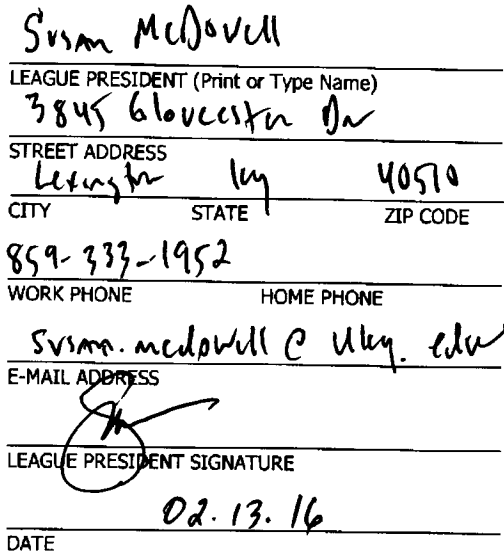 Susan McDowell
LEAGUE PRESIDENT (Print or Type Name)
3845 Gloucester Dr
STREET ADDRESS
Lexington Ky 40510
CITY STATE ZIP CODE
859-333-1952
WORK PHONE HOME PHONE
susan.mcdowell@uky.edu
E-MAIL ADDRESS
LEAGUE PRESIDENT SIGNATURE
02.13.16
DATE